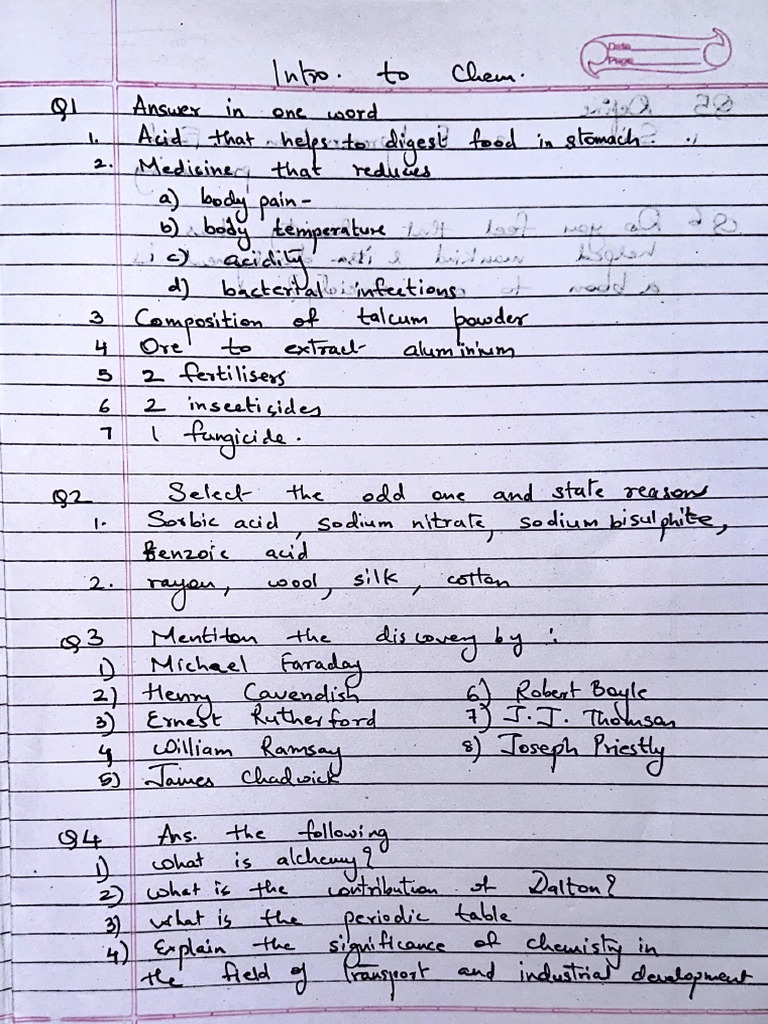 Date
Page
Intro. to Chem.
Q1 Answer in one word
1. Acid that helps to digest food in stomach.
2. Medicine that reduces
a) body pain-
b) body temperature
c) acidity
d) bacterial infections
3 Composition of talcum powder
4 Ore to extract aluminium
5 2 fertilisers
6 2 insecticides
7 1 fungicide.
Q2 Select the odd one and state reason
1. Sorbic acid, sodium nitrate, sodium bisulphite,
Benzoic acid
2. rayon, wool, silk, cotton
Q3 Mention the discovery by :
1) Michael Faraday
2) Henry Cavendish 6) Robert Boyle
3) Ernest Rutherford 7) J.J. Thomson
4 William Ramsay 8) Joseph Priestly
5) James Chadwick
Q4 Ans. the following
1) what is alchemy?
2) what is the contribution of Dalton?
3) what is the periodic table
4) Explain the significance of chemistry in
the field of transport and industrial development